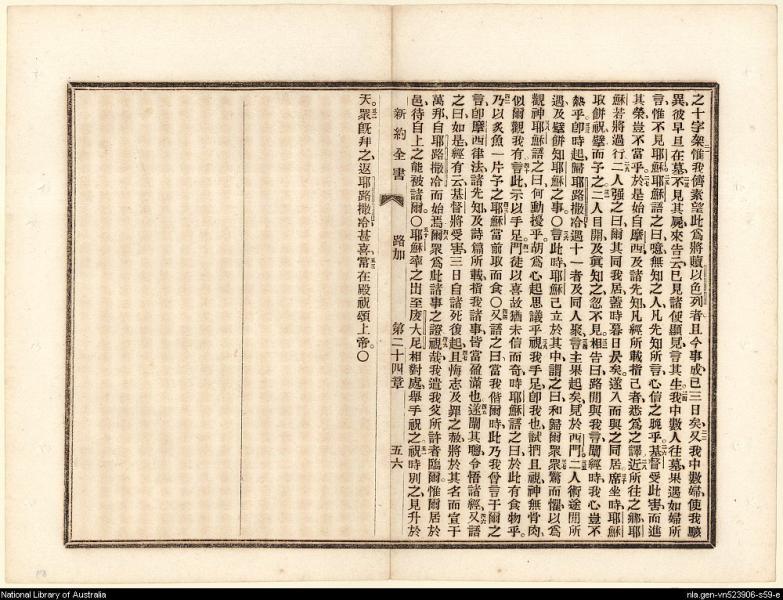 之十字架惟我儕素望此爲將贖以色列者且今事成已三日矣又我中數婦使我駭
異彼早旦在墓不見其屍來告云已見諸使顯見言其生我中數人往墓果遇如婦所
言惟不見耶穌耶穌語之曰噫無知之人凡先知所言心信之遲乎基督受此害而進
其榮豈不當乎於是始自摩西及諸先知凡經所載指己者悉爲之譯近所往之鄉耶
穌若將過行二人强之曰爾其同我居蓋時暮日昃矣遂入而與之同居席坐時耶穌
取餅祝擘而予之二人目開及眞知之忽不見相告曰路間與我言闡經時我心豈不
熱乎卽時起歸耶路撒冷遇十一者及同人聚言主果起矣見於西門二人術途間所
遇及擘餅知耶穌之事〇言此時耶穌己立於其中謂之曰和歸爾衆衆驚而懼以爲
觀神耶穌語之曰何動授乎胡爲心起思議乎視我手足卽我也試捫且視神無骨肉
似爾觀我有言此示以手足門徒以喜故猶未信而奇時耶穌語之曰於此有食物乎
乃以炙魚一片予之耶穌當前取而食〇又語之曰當我偕爾時此乃我曾言于爾之
言卽摩西律法諸先知及詩篇所載指我諸事皆當盈滿也遂闡其聰令悟諸經又語
之曰如是經有云基督將受害三日自諸死復起且悔志及罪之赦將於其名而宣于
萬邦自耶路撒冷而始焉爾衆爲此諸事之證視哉我遣我父所許者臨爾惟爾居於
邑待自上之能被諸爾〇耶穌率之出至伯大尼相對處舉手祝之祝時別之見升於
新約全書
路加
第二十四章
五六
天衆旣拜之返耶路撒冷甚喜當在殿祝頌上帝〇
National Library of Australia
nla.gen-vn523906-s59-e